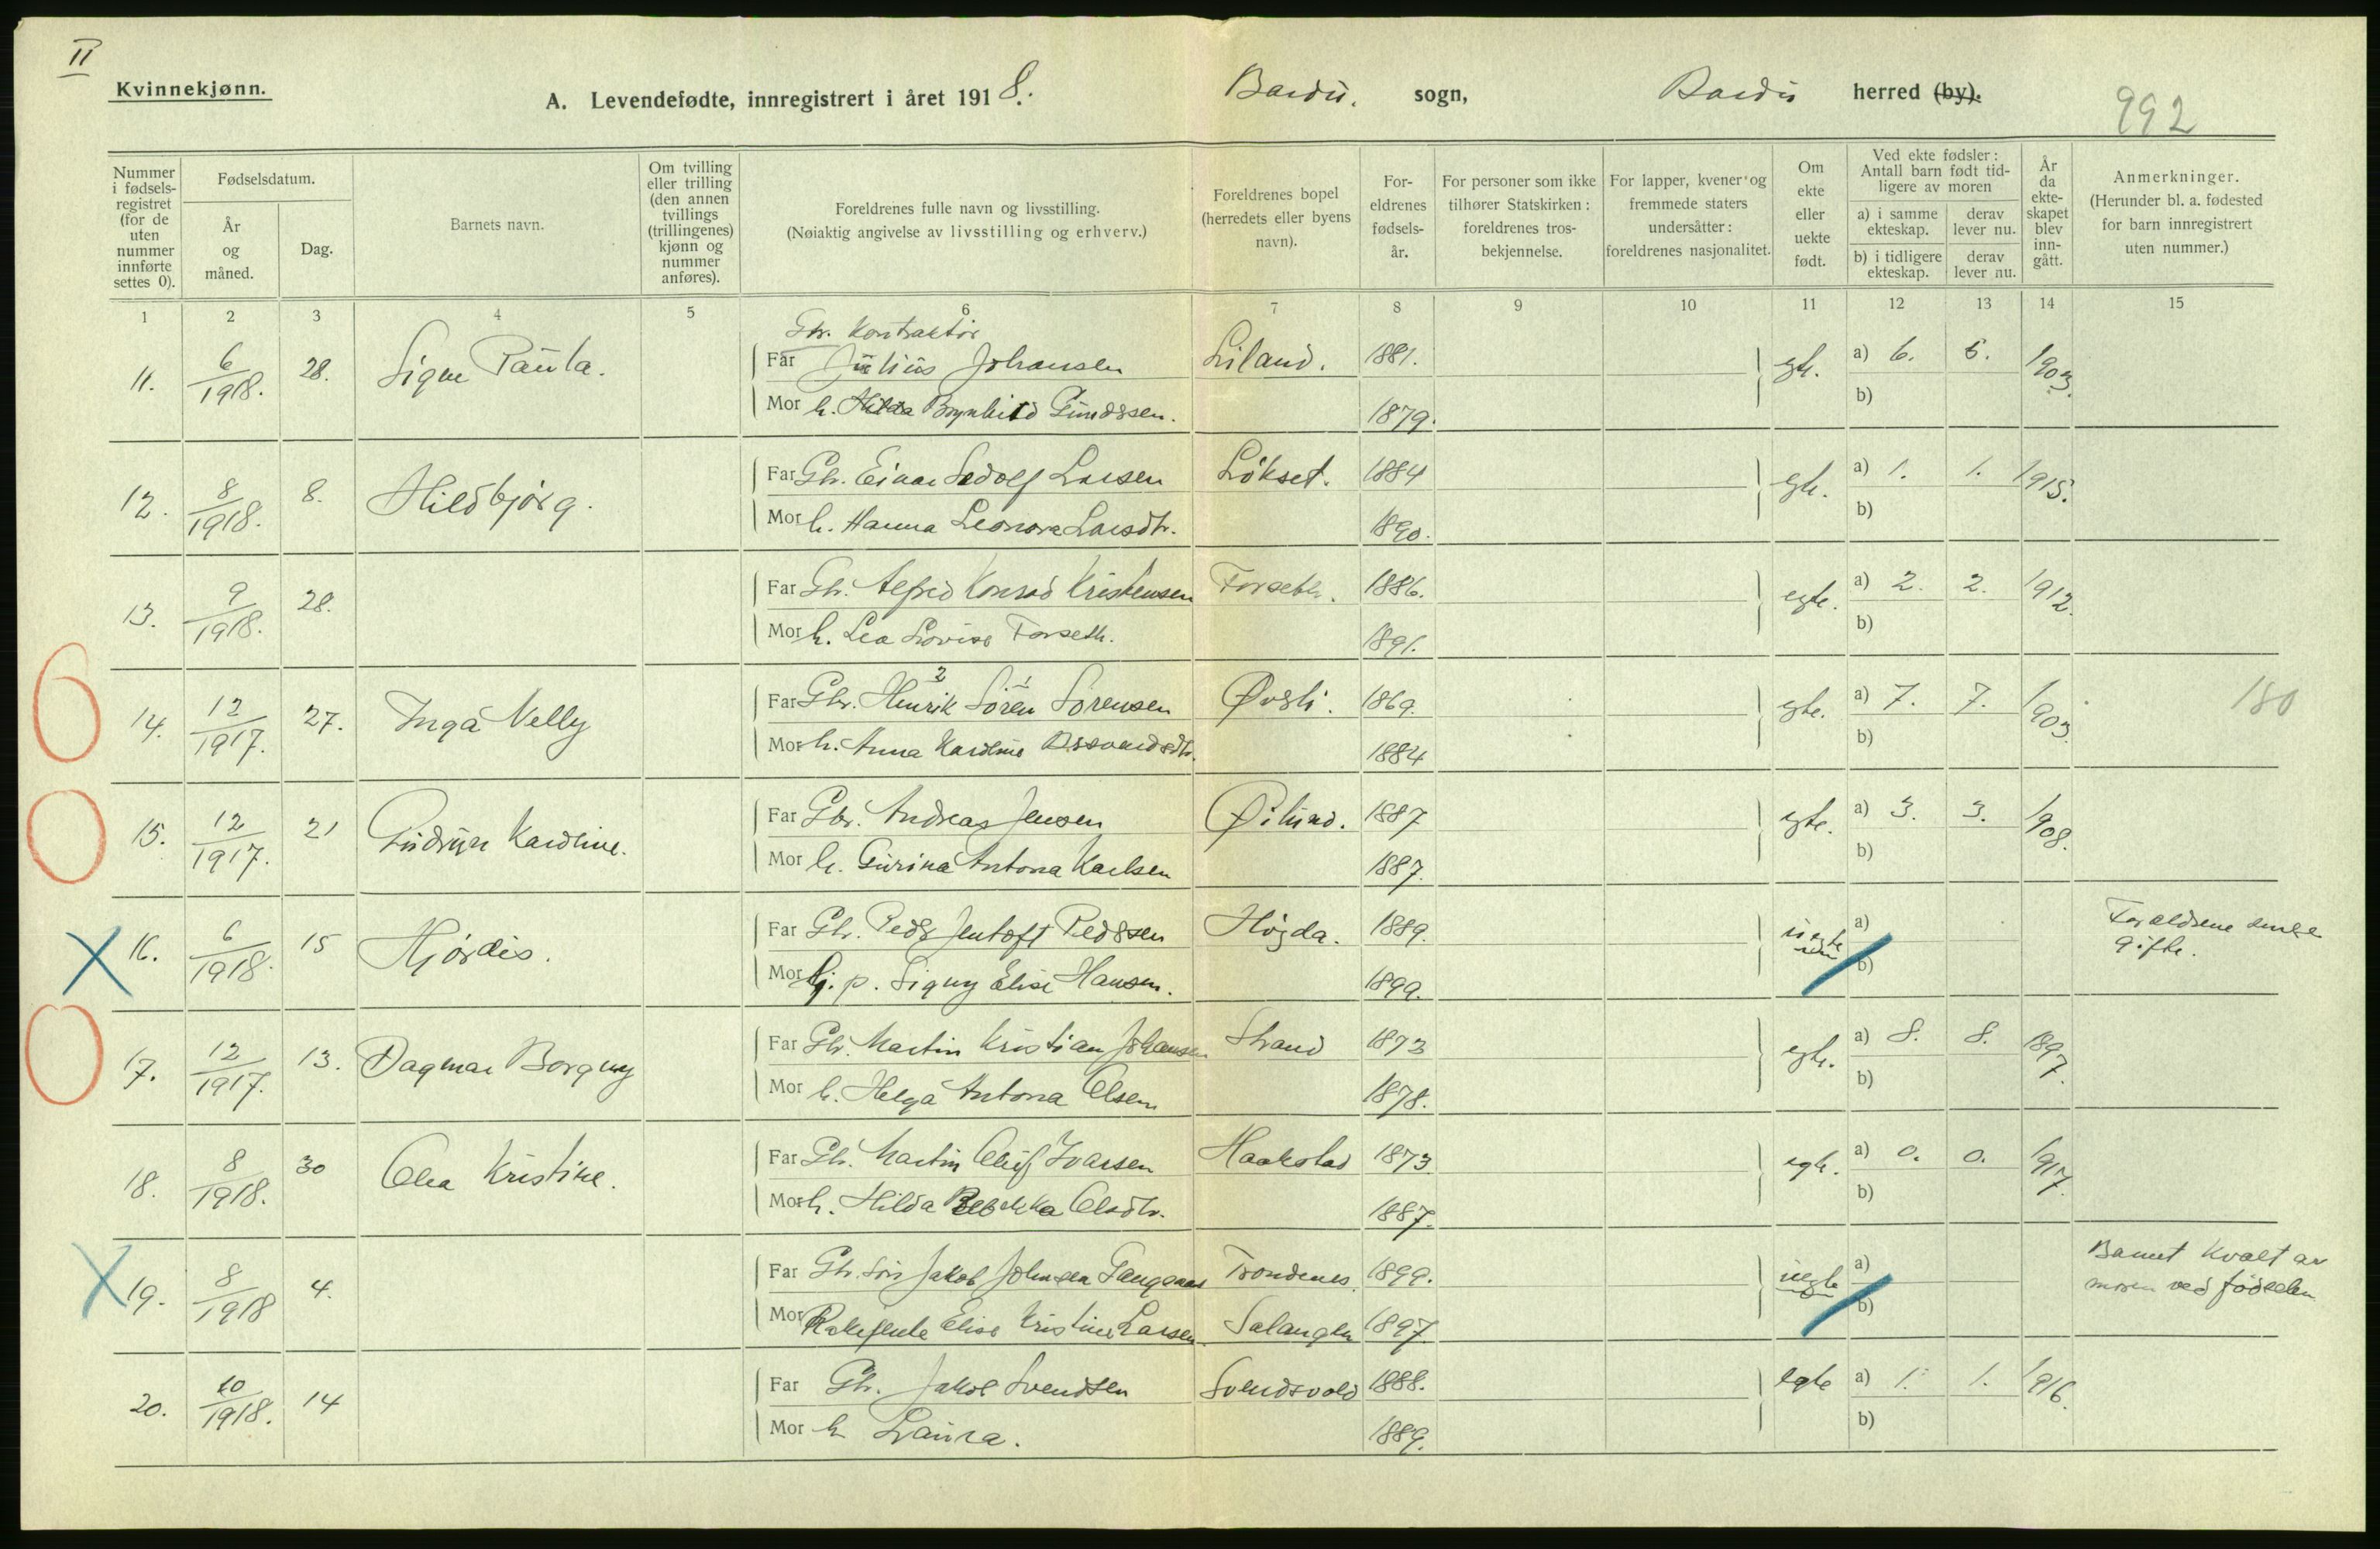 II
Kvinnekjønn.
A. Levendefødte, innregistrert i året 1918. Bardu. sogn, Bardu herred (by).
992
Nummer i fødselsregistret (for de uten nummer innførte settes 0).
Fødselsdatum.
År og måned.
Dag.
Barnets navn.
Om tvilling eller trilling (den annen tvillings (trillingenes) kjønn og nummer anføres).
Foreldrenes fulle navn og livsstilling.
(Nøiaktig angivelse av livsstilling og erhverv.)
Foreldrenes bopel (herredets eller byens navn).
Foreldrenes fødselsår.
For personer som ikke tilhører Statskirken: foreldrenes trosbekjennelse.
For lapper, kvener og fremmede staters undersåtter: foreldrenes nasjonalitet.
Om ekte eller uekte født.
Ved ekte fødsler: Antall barn født tidligere av moren
a) i samme ekteskap.
derav lever nu.
b) i tidligere ekteskap.
derav lever nu.
År da ekteskapet blev inngått.
Anmerkninger.
(Herunder bl. a. fødested for barn innregistrert uten nummer.)
1 2 3 4 5 6 7 8 9 10 11 12 13 14 15
Gbr. Kontraktør
11. 6/1918. 28. Signe Paula. Far Julius Johansen Liland. 1881. egt. a) 6. 5. 1903.
Mor h. Hilda Brynhild Gundssen. 1879. b)
12. 8/1918. 8. Hildbjørg. Far Gbr. Einar Larsen Løkset. 1884 egt. a) 1. 1. 1915.
Mor h. Hanna Leonora Larsdtr. 1890. b)
13. 9/1918. 28. Far Gbr. Alfred Konrad Kristensen Forseth. 1886. egte. a) 2. 2. 1912.
Mor h. Lea Lovise Forseth. 1891. b)
14. 12/1917. 27. Inga Nelly Far Gbr. Henrik 2 Søren 1 Sørensen Øvsli. 1869. egte. a) 7. 7. 1903. 180
Mor h. Anna Karoline 1884 b)
15. 12/1917. 21 Gudrun Karoline. Far Gbr. Andreas Jensen Øilund. 1887 egte. a) 3. 3. 1908.
Mor h. Gurina Antona Karlsen 1887. b)
16. 6/1918. 15 Hjørdis. Far Gbr. Peder Jentoft Pedersen Høgda. 1889. uegte a) Forældrene senere gifte.
Mor Tj. p. Signy Elise Hansen. 1899. b)
17. 12/1917. 13. Dagmar Borgny Far Gbr. Martin Kristian Johansen Strand 1873 egte. a) 8. 8. 1897.
Mor h. Helga Antona Olsen 1878. b)
18. 8/1918. 30 Olea Kristine. Far Gbr. Martin Oluf Ivarsen Haakstad 1873. egte. a) 0. 0. 1917.
Mor h. Hilda Rebekka Olsdtr. 1887. b)
19. 8/1918 4. Far Gbr. søn Jakob Johnsen Trondenes. 1899. uegte a) Barnet kvalt av moren ved fødselen
Mor Elise Kristine Larsen Salangen 1897. b)
20. 10/1918. 14 Far Gbr. Jakob Svendsen Svendsvold 1888. egte a) 1. 1. 1916.
Mor h Laura. 1889. b)